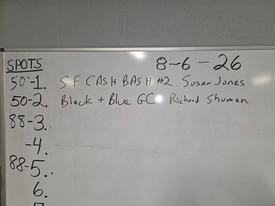 8-6-26
SPOTS
50-1. SF CASH BASH #2 Susan Jones
50-2. Black + Blue GC - Richard Shuman
88-3.
-4.
88-5.
6.